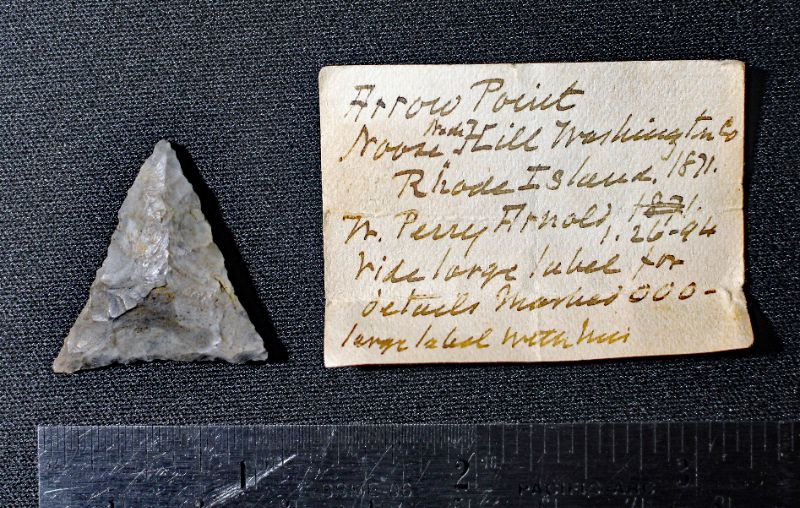 Arrow Point
Noose Neck Hill Washington Co
Rhode Island. 1871.
W. Perry Arnold 1871.
1.26-94
Vide large label for
details marked 000-
large label with this
1 2 3